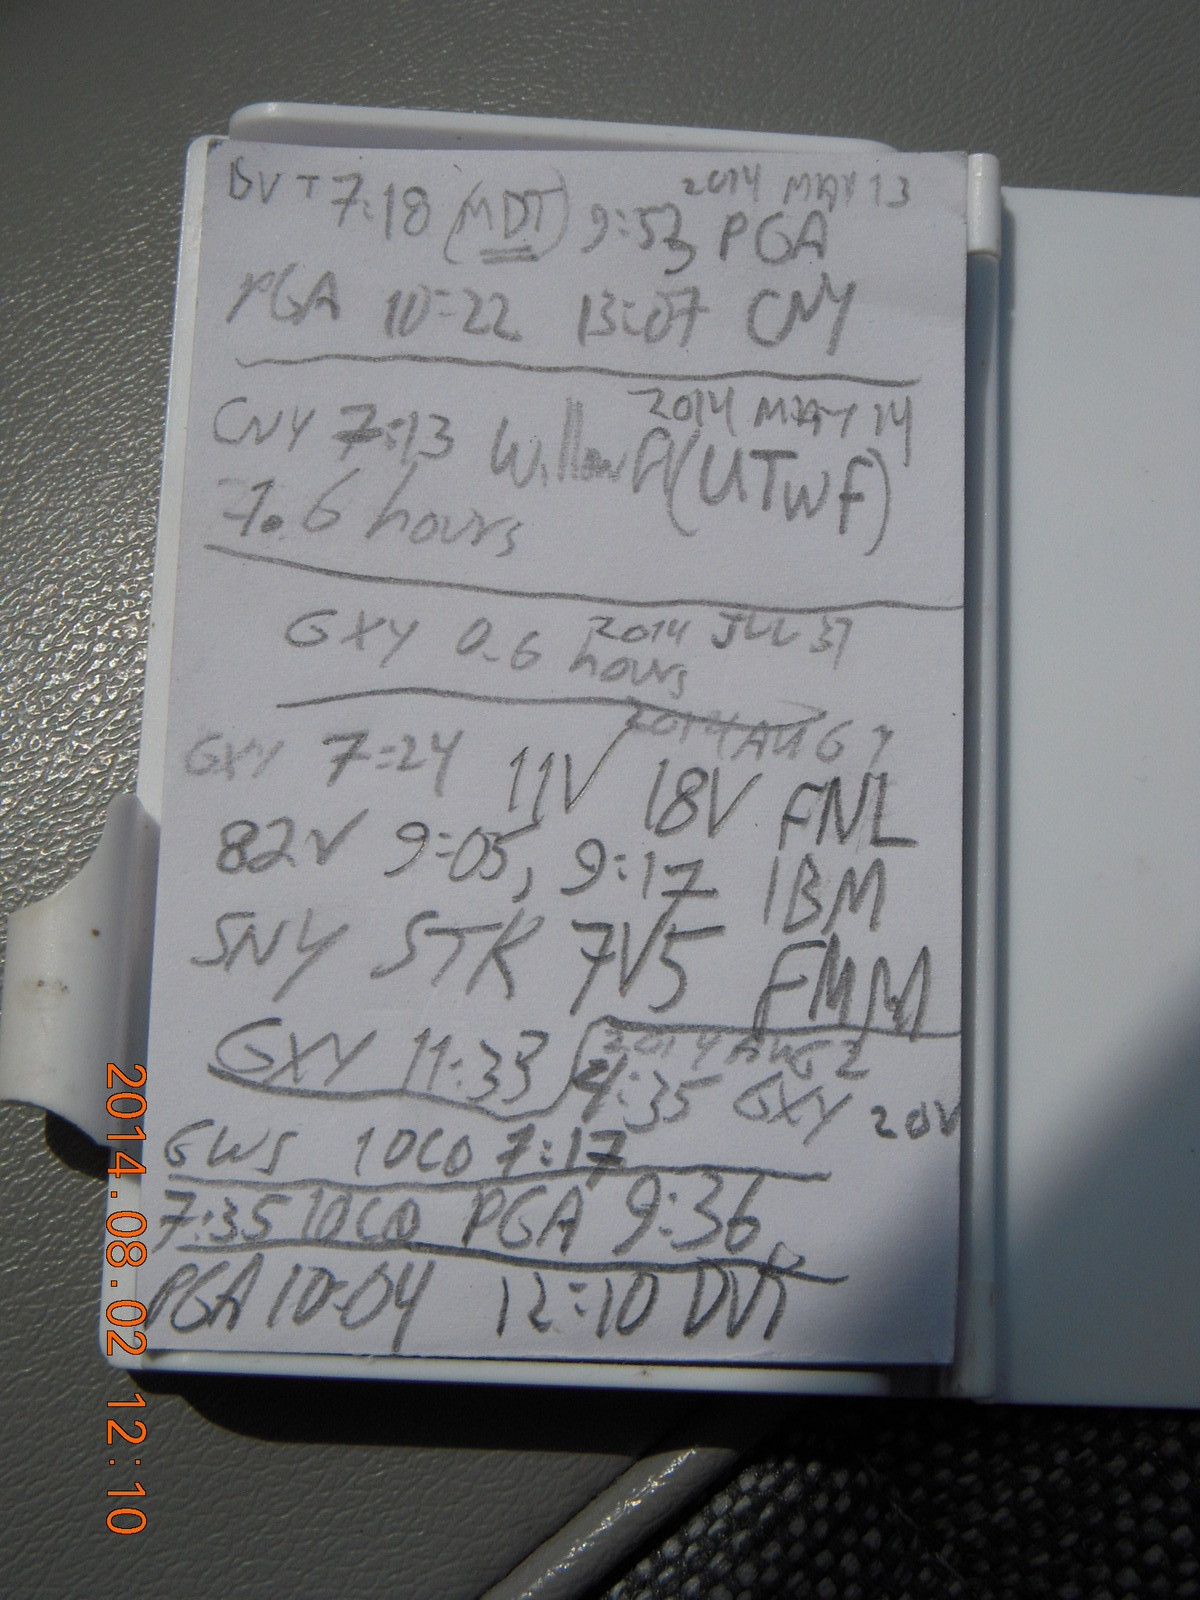 2014 MAY 13
DVT 7:18 (MDT) 9:53 PGA
PGA 10:22 13:07 CNY
2014 MAY 14
CNY 7:13 Willow Fl (UTWF)
7.6 hours
GXY 0.6 hours 2014 JUL 31
2014 AUG 1
GXY 7:24 11V 18V FNL
82V 9:05, 9:17 IBM
SNY STK 7V5 FMM
GXY 11:33
2014 AUG 2
4:35 GXY 20V
GWS 10CO 7:17
7:35 10CO PGA 9:36
PGA 10:04 12:10 DVT
2014.08.02 12:10